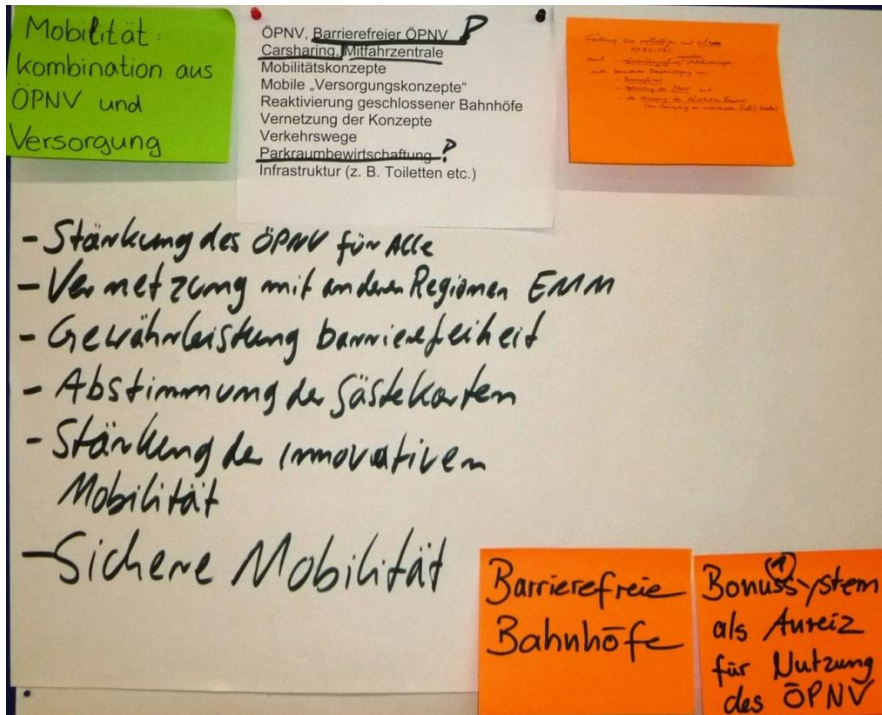 Mobilität:
kombination aus
ÖPNV und
Versorgung
ÖPNV, Barrierefreier ÖPNV P
Carsharing, Mitfahrzentrale
Mobilitätskonzepte
Mobile „Versorgungskonzepte“
Reaktivierung geschlossener Bahnhöfe
Vernetzung der Konzepte
Verkehrswege
Parkraumbewirtschaftung P
Infrastruktur (z. B. Toiletten etc.)
MOBILITÄT
- Barrierefreiheit
- Stärkung des ÖPNV für Alle
- Vernetzung mit anderen Regionen EMM
- Gewährleistung barrierefeiheit
- Abstimmung der Gästekarten
- Stärkung der innovativen
Mobilität
- Sichere Mobilität
Barrierefreie
Bahnhöfe
Bonussystem
als Anreiz
für Nutzung
des ÖPNV